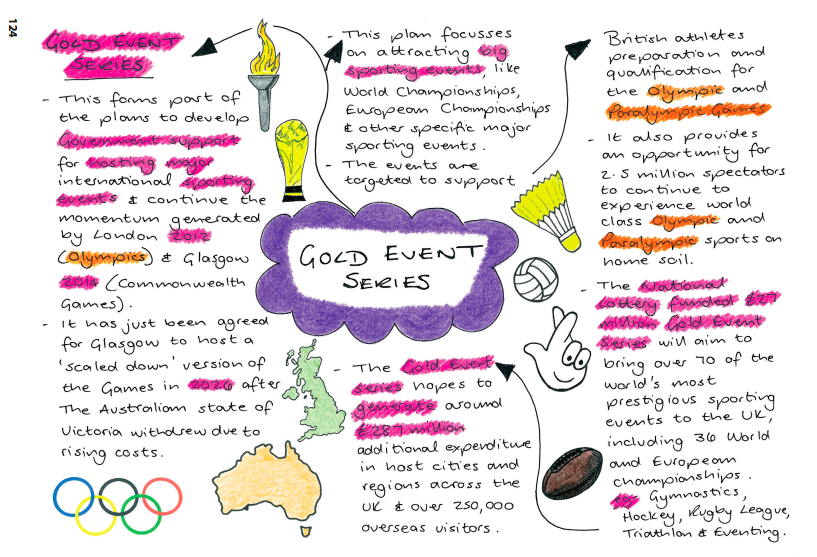 124
GOLD EVENT
SERIES
- This forms part of
the plans to develop
Government support
for hosting major
international sporting
events & continue the
momentum generated
by London 2012
(Olympics) & Glasgow
2014 (Commonwealth
Games).
- It has just been agreed
for Glasgow to host a
'scaled down' version of
the Games in 2026 after
The Australian state of
Victoria withdrew due to
rising costs.
- This plan focusses
on attracting big
sporting events, like
World Championships,
European Championships
& other specific major
sporting events.
- The events are
targeted to support
British athletes
preparation and
qualification for
the Olympic and
Paralympic Games
- It also provides
an opportunity for
2.5 million spectators
to continue to
experience world
class Olympic and
Paralympic sports on
home soil.
GOLD EVENT
SERIES
- The National
Lottery funded £27
million Gold Event
Series will aim to
bring over 70 of the
world's most
prestigious sporting
events to the UK,
including 36 World
and European
championships.
eg Gymnastics,
Hockey, Rugby League,
Triathlon & Eventing.
- The Gold Event
series hopes to
generate around
£287 million
additional expenditure
in host cities and
regions across the
UK & over 250,000
overseas visitors.